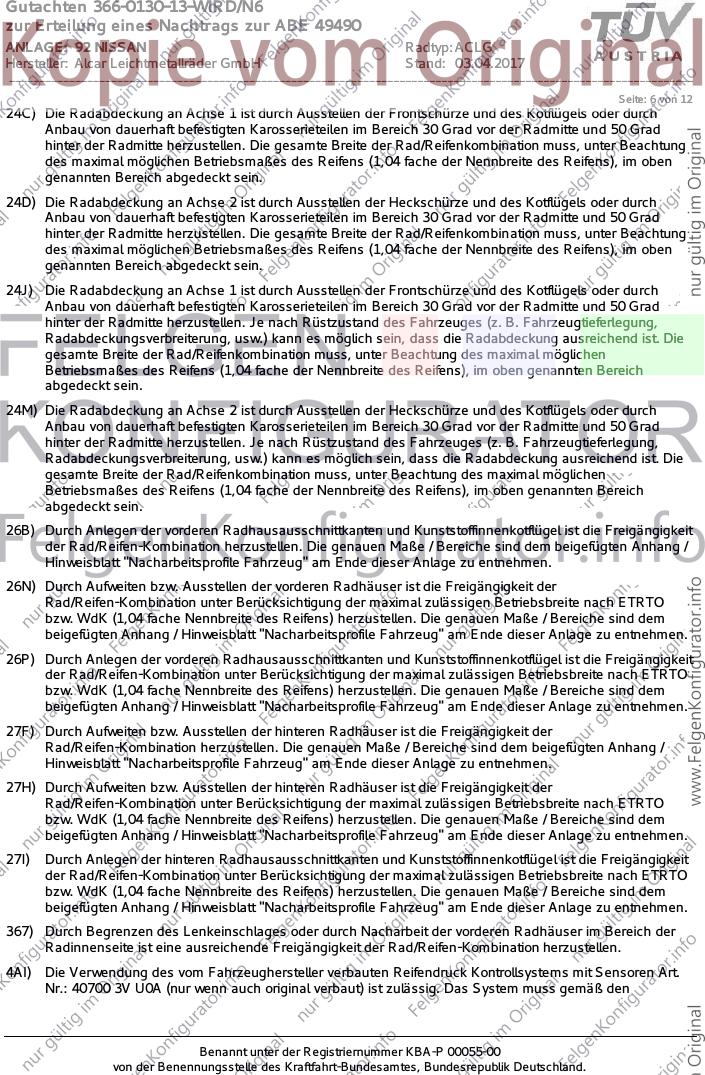 Gutachten 366-0130-13-WIRD/N6
zur Erteilung eines Nachtrags zur ABE 49490
ANLAGE: 92 NISSAN
Hersteller: Alcar Leichtmetallräder GmbH
Radtyp: ACLG
Stand: 03.04.2017
TÜV
AUSTRIA
Kopie vom Original
Seite: 6 von 12
24C) Die Radabdeckung an Achse 1 ist durch Ausstellen der Frontschürze und des Kotflügels oder durch
Anbau von dauerhaft befestigten Karosserieteilen im Bereich 30 Grad vor der Radmitte und 50 Grad
hinter der Radmitte herzustellen. Die gesamte Breite der Rad/Reifenkombination muss, unter Beachtung
des maximal möglichen Betriebsmaßes des Reifens (1,04 fache der Nennbreite des Reifens), im oben
genannten Bereich abgedeckt sein.
24D) Die Radabdeckung an Achse 2 ist durch Ausstellen der Heckschürze und des Kotflügels oder durch
Anbau von dauerhaft befestigten Karosserieteilen im Bereich 30 Grad vor der Radmitte und 50 Grad
hinter der Radmitte herzustellen. Die gesamte Breite der Rad/Reifenkombination muss, unter Beachtung
des maximal möglichen Betriebsmaßes des Reifens (1,04 fache der Nennbreite des Reifens), im oben
genannten Bereich abgedeckt sein.
24J) Die Radabdeckung an Achse 1 ist durch Ausstellen der Frontschürze und des Kotflügels oder durch
Anbau von dauerhaft befestigten Karosserieteilen im Bereich 30 Grad vor der Radmitte und 50 Grad
hinter der Radmitte herzustellen. Je nach Rüstzustand des Fahrzeuges (z. B. Fahrzeugtieferlegung,
Radabdeckungsverbreiterung, usw.) kann es möglich sein, dass die Radabdeckung ausreichend ist. Die
gesamte Breite der Rad/Reifenkombination muss, unter Beachtung des maximal möglichen
Betriebsmaßes des Reifens (1,04 fache der Nennbreite des Reifens), im oben genannten Bereich
abgedeckt sein.
24M) Die Radabdeckung an Achse 2 ist durch Ausstellen der Heckschürze und des Kotflügels oder durch
Anbau von dauerhaft befestigten Karosserieteilen im Bereich 30 Grad vor der Radmitte und 50 Grad
hinter der Radmitte herzustellen. Je nach Rüstzustand des Fahrzeuges (z. B. Fahrzeugtieferlegung,
Radabdeckungsverbreiterung, usw.) kann es möglich sein, dass die Radabdeckung ausreichend ist. Die
gesamte Breite der Rad/Reifenkombination muss, unter Beachtung des maximal möglichen
Betriebsmaßes des Reifens (1,04 fache der Nennbreite des Reifens), im oben genannten Bereich
abgedeckt sein.
26B) Durch Anlegen der vorderen Radhausausschnittkanten und Kunststoffinnenkotflügel ist die Freigängigkeit
der Rad/Reifen-Kombination herzustellen. Die genauen Maße / Bereiche sind dem beigefügten Anhang /
Hinweisblatt "Nacharbeitsprofile Fahrzeug" am Ende dieser Anlage zu entnehmen.
26N) Durch Aufweiten bzw. Ausstellen der vorderen Radhäuser ist die Freigängigkeit der
Rad/Reifen-Kombination unter Berücksichtigung der maximal zulässigen Betriebsbreite nach ETRTO
bzw. WdK (1,04 fache Nennbreite des Reifens) herzustellen. Die genauen Maße / Bereiche sind dem
beigefügten Anhang / Hinweisblatt "Nacharbeitsprofile Fahrzeug" am Ende dieser Anlage zu entnehmen.
26P) Durch Anlegen der vorderen Radhausausschnittkanten und Kunststoffinnenkotflügel ist die Freigängigkeit
der Rad/Reifen-Kombination unter Berücksichtigung der maximal zulässigen Betriebsbreite nach ETRTO
bzw. WdK (1,04 fache Nennbreite des Reifens) herzustellen. Die genauen Maße / Bereiche sind dem
beigefügten Anhang / Hinweisblatt "Nacharbeitsprofile Fahrzeug" am Ende dieser Anlage zu entnehmen.
27F) Durch Aufweiten bzw. Ausstellen der hinteren Radhäuser ist die Freigängigkeit der
Rad/Reifen-Kombination herzustellen. Die genauen Maße / Bereiche sind dem beigefügten Anhang /
Hinweisblatt "Nacharbeitsprofile Fahrzeug" am Ende dieser Anlage zu entnehmen.
27H) Durch Aufweiten bzw. Ausstellen der hinteren Radhäuser ist die Freigängigkeit der
Rad/Reifen-Kombination unter Berücksichtigung der maximal zulässigen Betriebsbreite nach ETRTO
bzw. WdK (1,04 fache Nennbreite des Reifens) herzustellen. Die genauen Maße / Bereiche sind dem
beigefügten Anhang / Hinweisblatt "Nacharbeitsprofile Fahrzeug" am Ende dieser Anlage zu entnehmen.
27I) Durch Anlegen der hinteren Radhausausschnittkanten und Kunststoffinnenkotflügel ist die Freigängigkeit
der Rad/Reifen-Kombination unter Berücksichtigung der maximal zulässigen Betriebsbreite nach ETRTO
bzw. WdK (1,04 fache Nennbreite des Reifens) herzustellen. Die genauen Maße / Bereiche sind dem
beigefügten Anhang / Hinweisblatt "Nacharbeitsprofile Fahrzeug" am Ende dieser Anlage zu entnehmen.
367) Durch Begrenzen des Lenkeinschlages oder durch Nacharbeit der vorderen Radhäuser im Bereich der
Radinnenseite ist eine ausreichende Freigängigkeit der Rad/Reifen-Kombination herzustellen.
4AI) Die Verwendung des vom Fahrzeughersteller verbauten Reifendruck Kontrollsystems mit Sensoren Art.
Nr.: 40700 3V U0A (nur wenn auch original verbaut) ist zulässig. Das System muss gemäß den
Benannt unter der Registriernummer KBA-P 00055-00
von der Benennungsstelle des Kraftfahrt-Bundesamtes, Bundesrepublik Deutschland.
FELGEN
KONFIGURATOR
FelgenKonfigurator.info
nur gültig im Original
www.FelgenKonfigurator.info